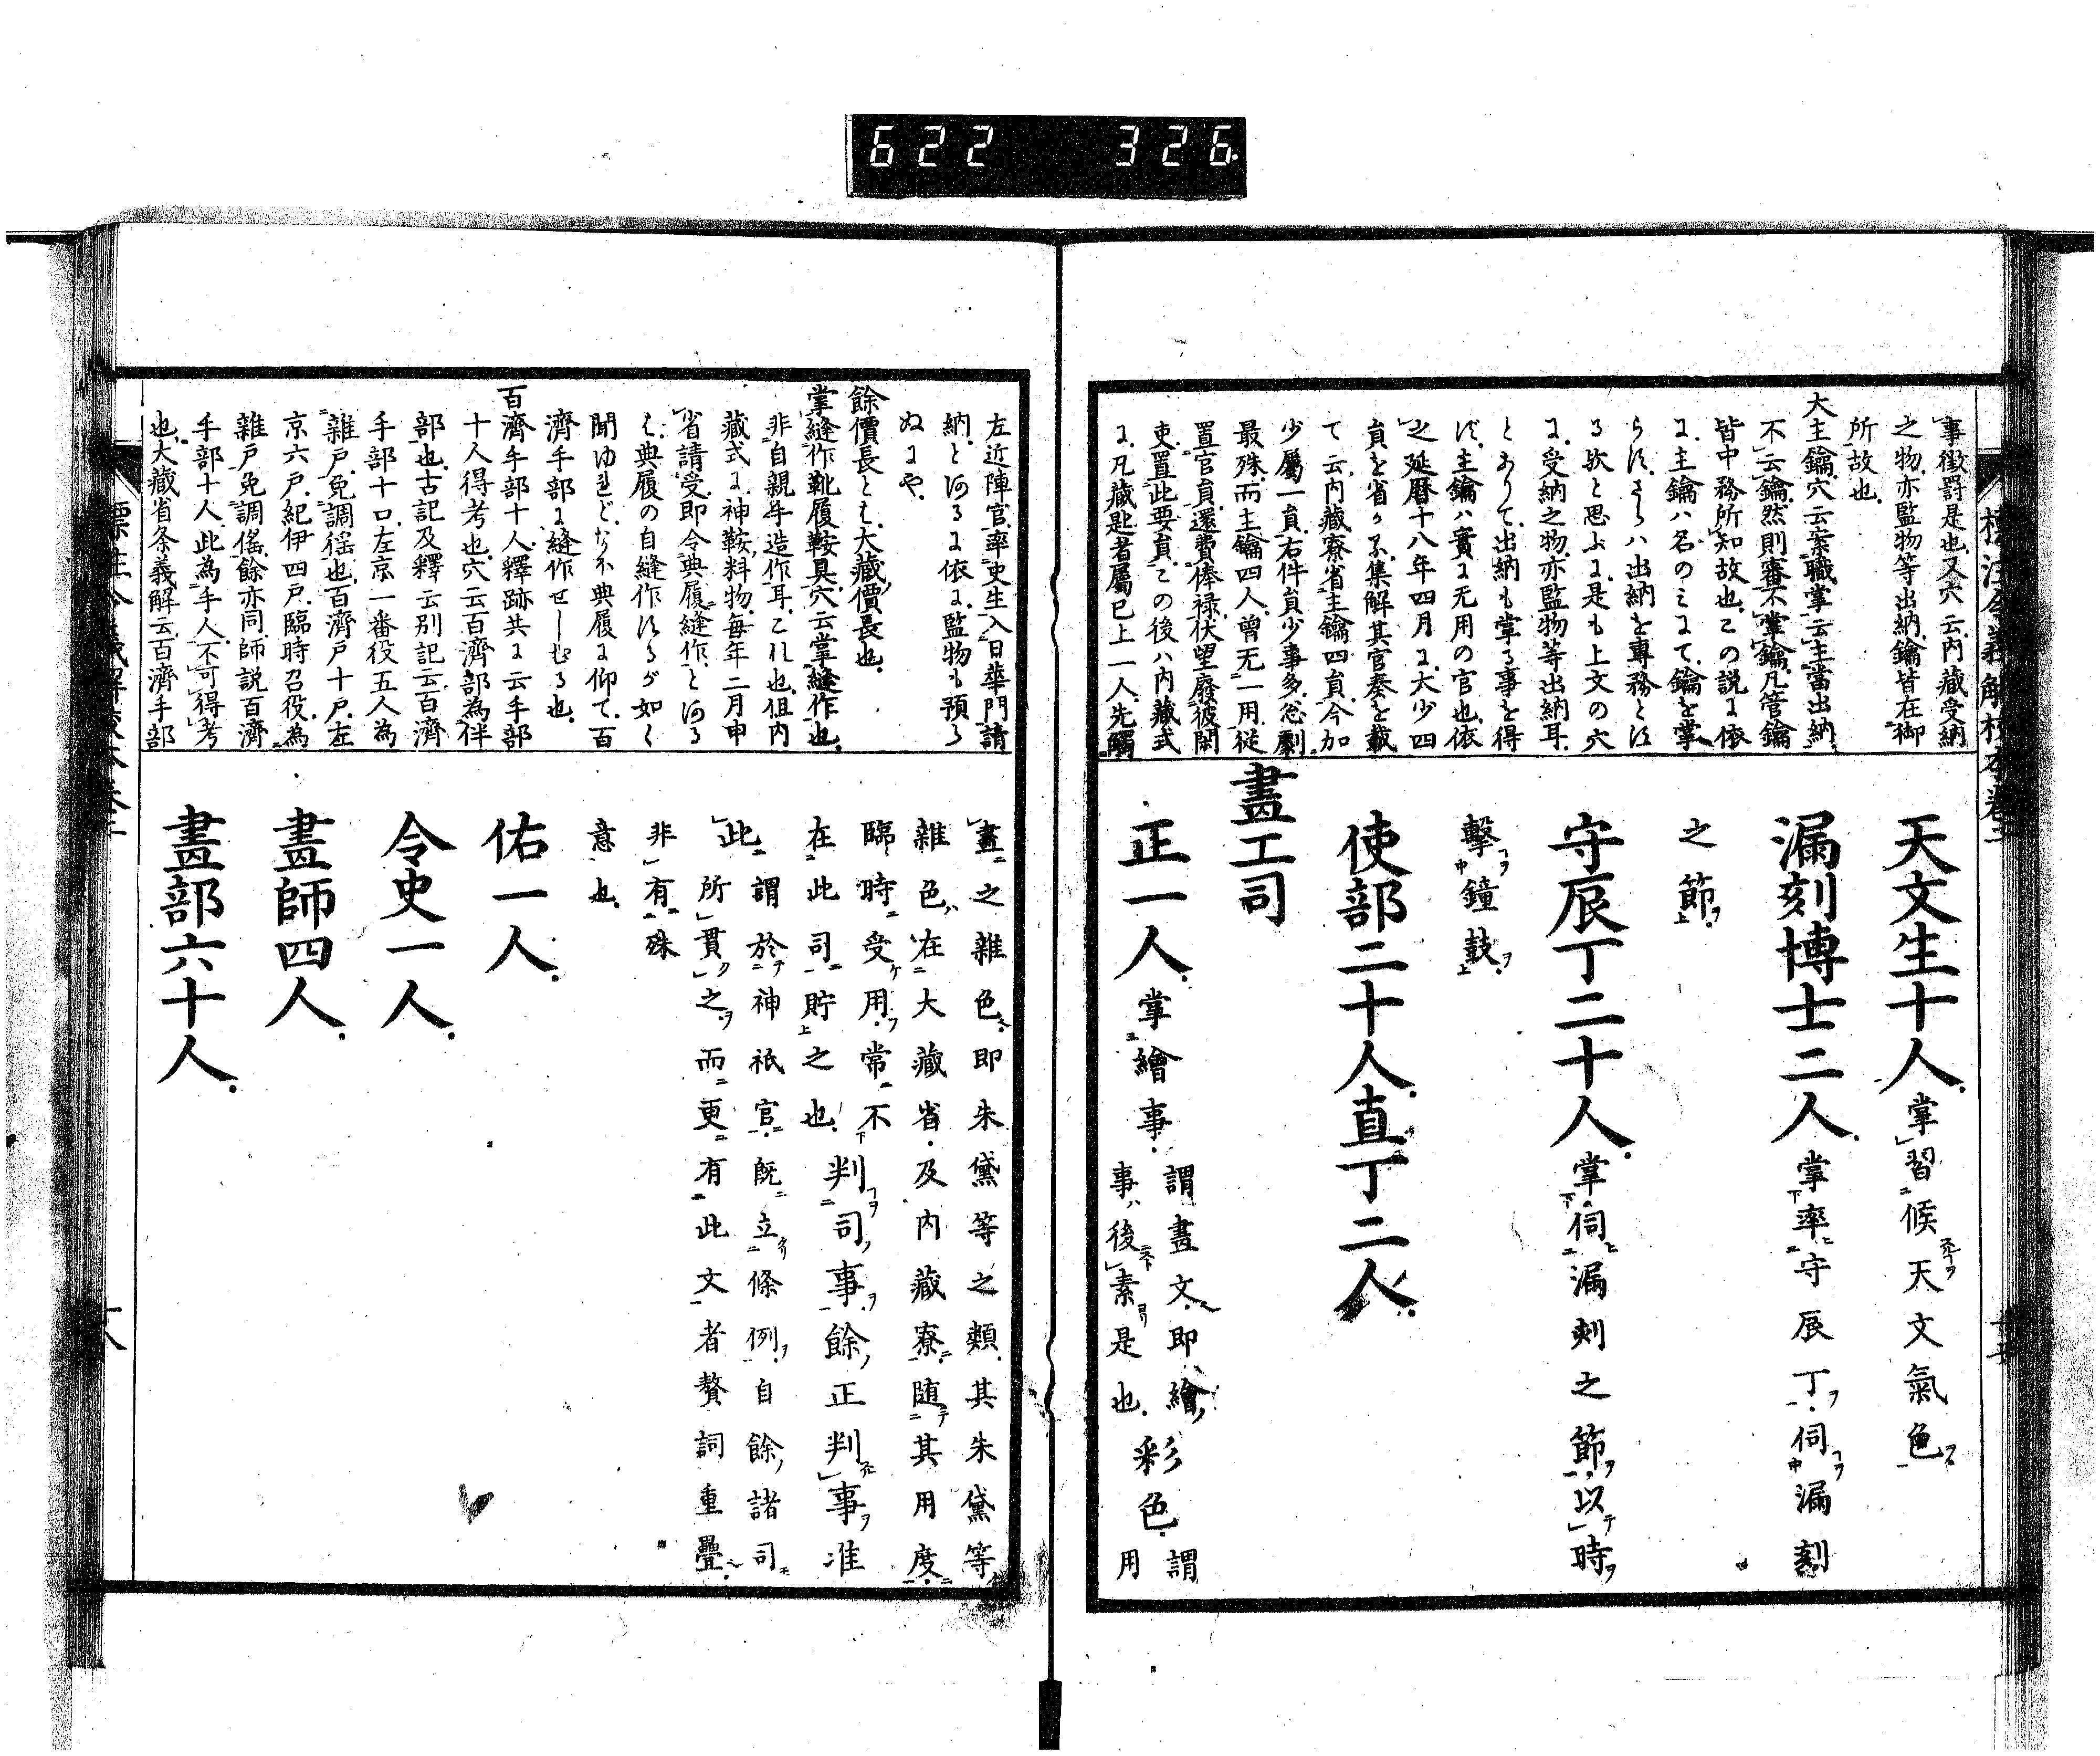 622 326
事徴罸是也又穴云内藏受納
之物亦監物等出納鑰皆在御
所故也
大主鑰穴云案職掌云主當出納
不云鑰然則審不掌鑰凡管鑰
皆中務所知故也この説に依
に主鑰ハ名のミにて鑰を掌
らにさらハ出納を專務とに
る欤と思ふに是も上文の穴
に受納之物亦監物等出納耳
とありて出納も掌る事を得
ず主鑰ハ實に无用の官也依
之延暦十八年四月に大少四
員を省かる集解其官奏を載
て云内藏寮省主鑰四員今加
少屬一員右件員少事多怱劇
最殊而主鑰四人曾无一用徒
置官員還費俸禄伏望廢彼閑
吏置此要員この後ハ内藏式
に凡藏匙者屬已上一人先觸
天文生十人掌習候天文氣色
漏刻博士二人掌率守辰丁伺漏刻
之節
守辰丁二十人掌伺漏刻之節以時
擊鐘鼓
使部二十人直丁二人
畫工司
正一人掌繪事謂畫文即繪
事後素是也彩色謂
用
左近陣官率史生入日華門請
納とあるに依に監物も預ら
ぬにや
餘價長とは大藏價長也
掌縫作靴履鞍具穴云掌縫作也
非自親手造作耳これ也但内
藏式に神鞍料物毎年二月申
省請受即令典履縫作とある
は典履の自縫作するが如く
聞ゆれどなほ典履に仰て百
濟手部に縫作せしむる也
百濟手部十人釋跡共に云手部
十人得考也穴云百濟部為伴
部也古記及釋云别記云百濟
手部十口左京一番役五人為
雜戸免調徭也百濟戸十戸左
京六戸紀伊四戸臨時召役為
雜戸免調徭餘亦同師説百濟
手部十人此為手人不可得考
也大藏省条義解云百濟手部
畫之雜色即朱黛等之類其朱黛等
雜色在大藏省及内藏寮随其用度
臨時受用常不
在此司貯之也判司事餘正判事准
此謂於神祇官既立條例自餘諸司
所貫之而更有此文者贅詞重疊
非有殊
意也
佑一人
令史一人
畫師四人
畫部六十人